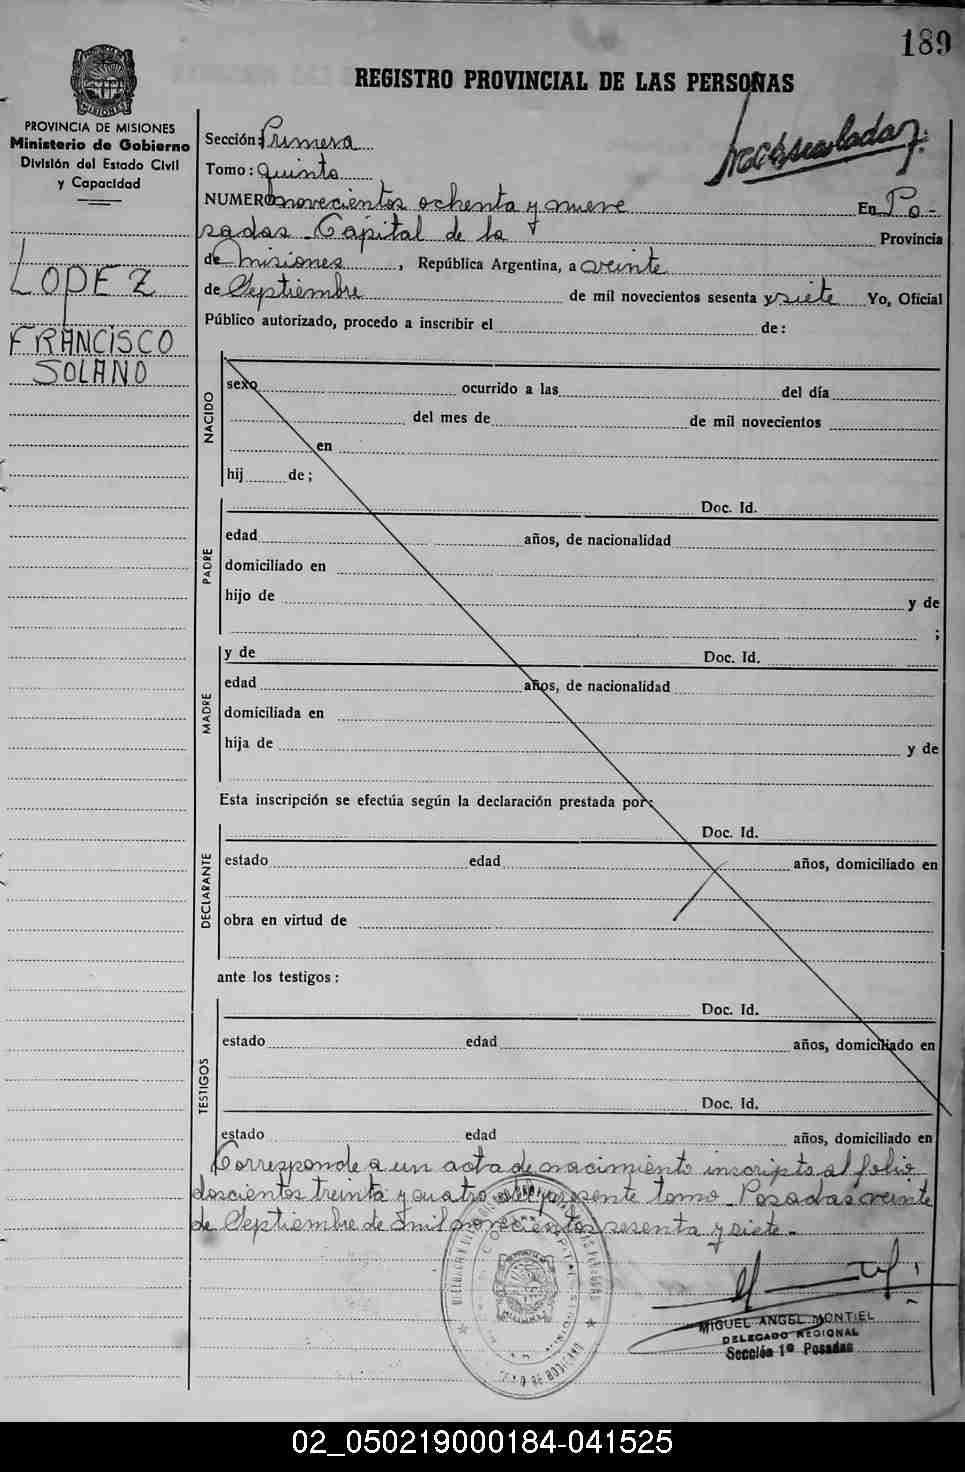 189
REGISTRO PROVINCIAL DE LAS PERSONAS
PROVINCIA DE MISIONES
Ministerio de Gobierno
División del Estado Civil
y Capacidad
LOPEZ
FRANCISCO
SOLANO
Sección: Primera
Tomo: Quinto
NUMERO novecientos ochenta y nueve En Po-
sadas Capital de la Provincia
de Misiones, República Argentina, a veinte
de Septiembre de mil novecientos sesenta y siete Yo, Oficial
Público autorizado, procedo a inscribir el de:
NACIDO
sexo ocurrido a las del día
del mes de de mil novecientos
en
hij de;
PADRE
Doc. Id.
edad años, de nacionalidad
domiciliado en
hijo de y de
;
MADRE
y de Doc. Id.
edad años, de nacionalidad
domiciliada en
hija de y de
Esta inscripción se efectúa según la declaración prestada por:
DECLARANTE
Doc. Id.
estado edad años, domiciliado en
obra en virtud de
ante los testigos:
TESTIGOS
Doc. Id.
estado edad años, domiciliado en
Doc. Id.
estado edad años, domiciliado en
Corresponde a un acta de nacimiento inscripto al folio
doscientos treinta y cuatro del presente tomo. Posadas veinte
de Septiembre de mil novecientos sesenta y siete.-
MIGUEL ANGEL MONTIEL
DELEGADO REGIONAL
Sección 1º Posadas
02_050219000184-041525